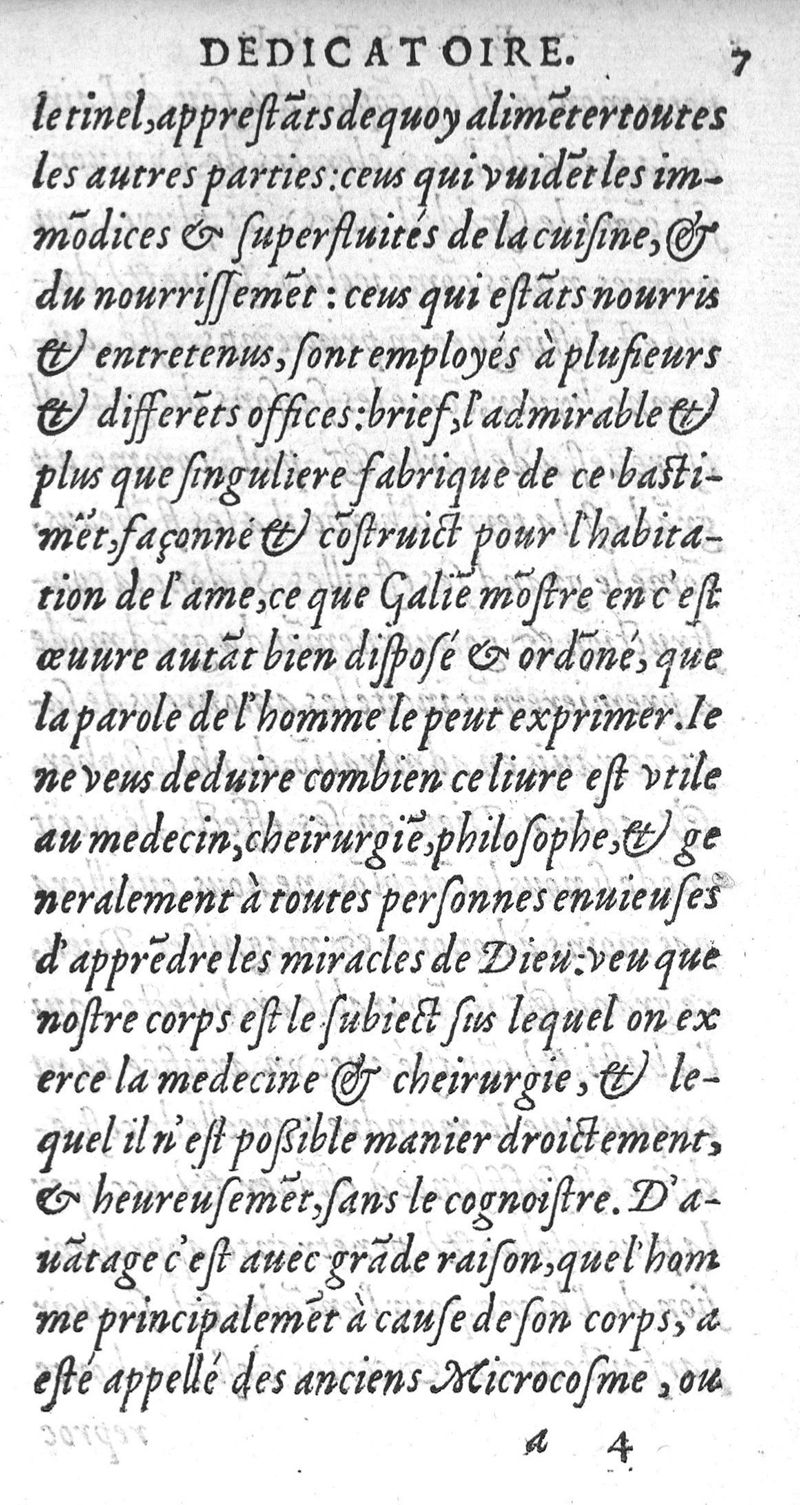 DEDICATOIRE. 7
le tinel, appreſtãts de quoy alimẽter toutes
les autres parties: ceus qui vuidẽt les im-
mõdices & ſuperfluités de la cuiſine, &
du nourriſſemẽt : ceus qui eſtãts nourris
& entretenus, ſont employés à pluſieurs
& differẽts offices: brief, l'admirable &
plus que ſinguliere fabrique de ce baſti-
mẽt, façonné & cõſtruict pour l'habita-
tion de l'ame, ce que Galiẽ mõſtre en c'eſt
œuure autãt bien diſpoſé & ordõné, que
la parole de l'homme le peut exprimer. Ie
ne veus deduire combien ce liure eſt vtile
au medecin, cheirurgiẽ, philoſophe, & ge
neralement à toutes perſonnes enuieuſes
d'apprẽdre les miracles de Dieu: veu que
noſtre corps eſt le ſubiect ſus lequel on ex
erce la medecine & cheirurgie, & le-
quel il n'eſt poßible manier droictement,
& heureuſemẽt, ſans le cognoiſtre. D'a-
uãtage c'eſt auec grãde raiſon, que l'hom
me principalemẽt à cauſe de ſon corps, a
eſté appellé des anciens Microcoſme, ou
a 4